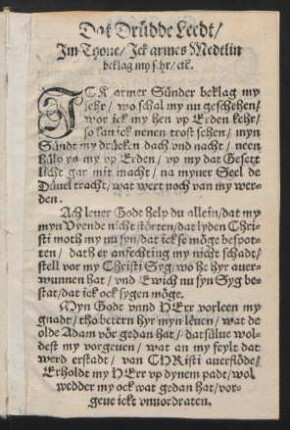 Dat Drüdde Leedt/
Im Thone/ Ick armes Medtlin
beklag my sehr/ etc.
ICk armer Sünder beklag my
sehr/ wo schal my nu geschehen/
wor ick my hen vp Erden kehr/
so kan ick nenen trost sehen/ myn
Sündt my drücken dach vnd nacht/ neen
hülp ys my vp Erden/ vp my dat Gesett
licht gar mit macht/ na myner Seel de
Düuel tracht/ wat wert noch van my wer-
den.
Ach leuer Godt help du allein/ dat my
myn Vyende nicht störten/ dat lyden Chri-
sti moth my nu syn/ dat ick se möge bespot-
ten/ dath er anfechting my nicht schadt/
stell vor my Christi Syg/ wo he hyr auer-
wunnen hat/ vnd Ewich nu syn Syg be-
stat/ dat ick ock sygen möge.
Myn Godt vnnd HErr vorleen my
gnade/ tho betern hyr myn leuen/ wat de
olde Adam vöe gedan hat/ dat sülue wol-
dest my vorgeuen/ wat an my feylt dat
werd erstadt/ van CHRisti auerflöde/
Erholdt my HErr vp dynem padt/ wol
wedder my ock wat gedan hat/ vor-
geue ickt vnuordraten.